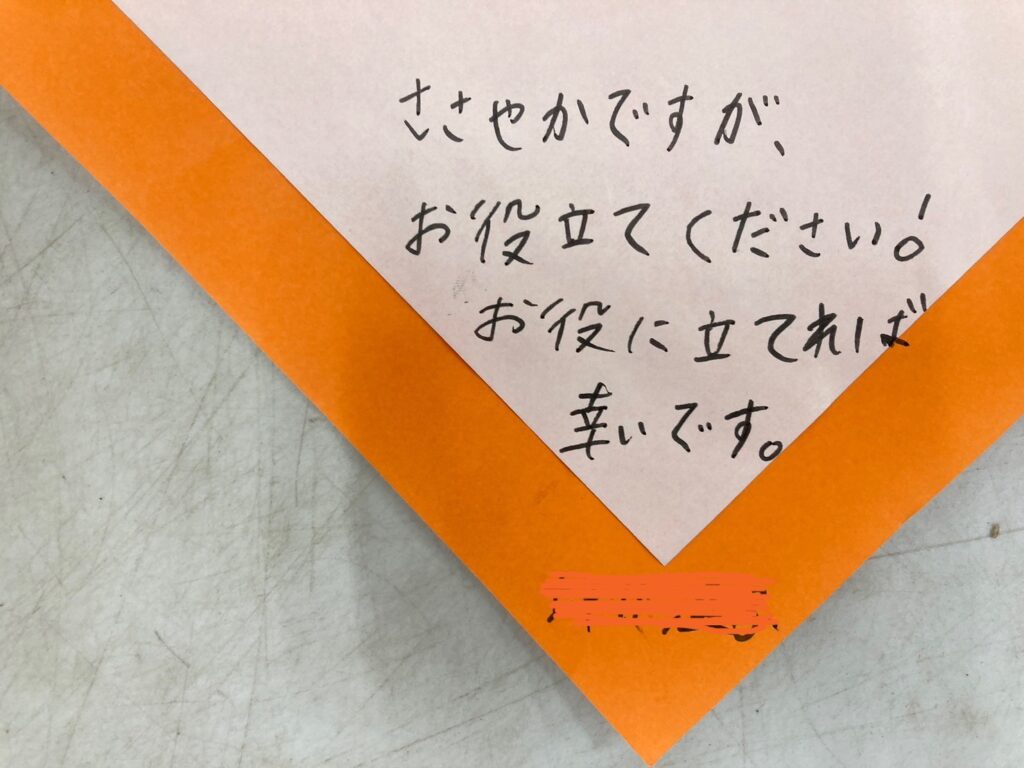 ささやかですが、
お役立てください!
お役に立てれば
幸いです。